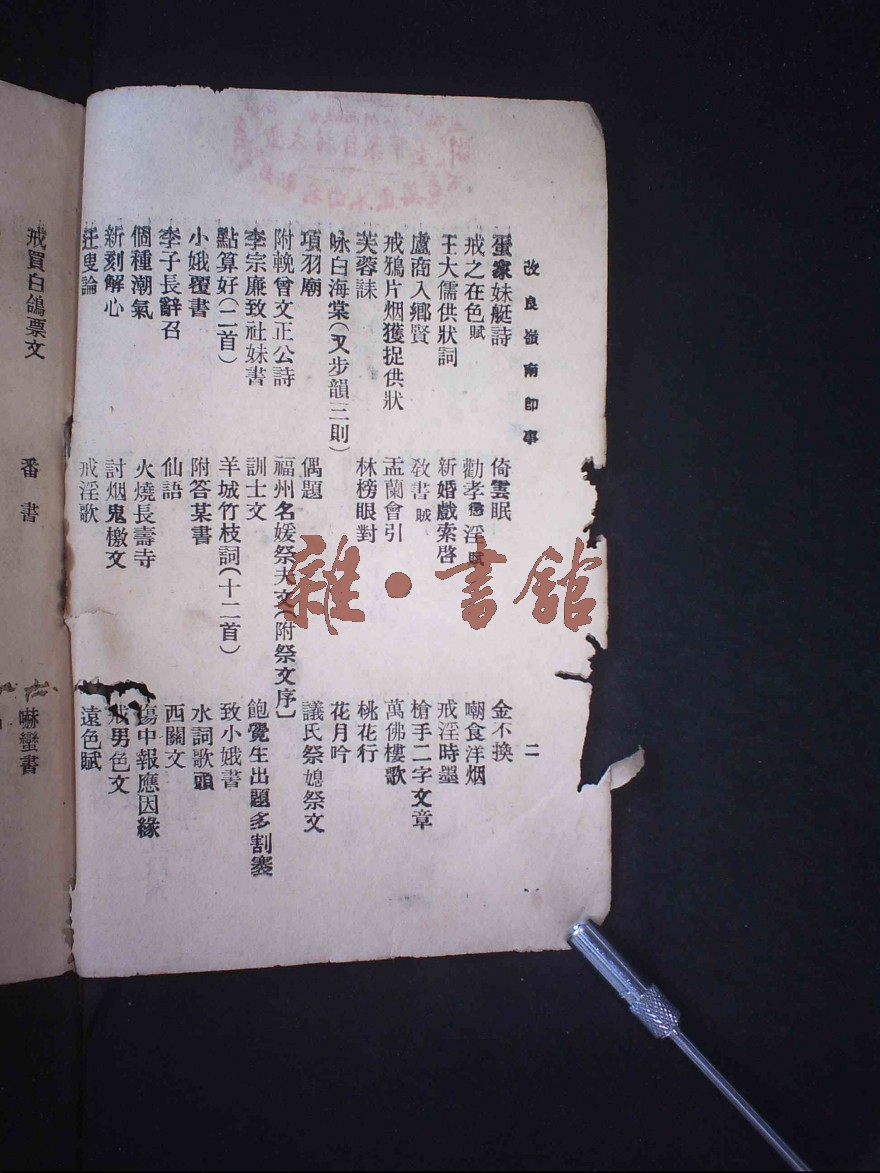 改良嶺南即事
二
蛋家妹艇詩
倚雲眠
金不換
戒之在色賦
勸孝懲淫賦
嘲食洋烟
王大儒供狀詞
新婚戲索啓
戒淫時墨
盧商入鄉賢
教書賊
槍手二字文章
戒鴉片烟獲捉供狀
盂蘭會引
萬佛樓歌
芙蓉誄
林榜眼對
桃花行
咏白海棠(又步韻三則)
花月吟
項羽廟
偶題
議氏祭媳祭文
附輓曾文正公詩
福州名媛祭夫文(附祭文序)
李宗廉致社妹書
訓士文
飽覺生出題多割裂
點算好(二首)
羊城竹枝詞(十二首)
致小娥書
小娥覆書
附答某書
水詞歌頭
李子長辭召
仙語
西關文
個種潮氣
火燒長壽寺
傷中報應因緣
新刻解心
討烟鬼檄文
戒男色文
迂叟論
戒淫歌
遠色賦
戒買白鴿票文
番書
嚇蠻書
雜·書館